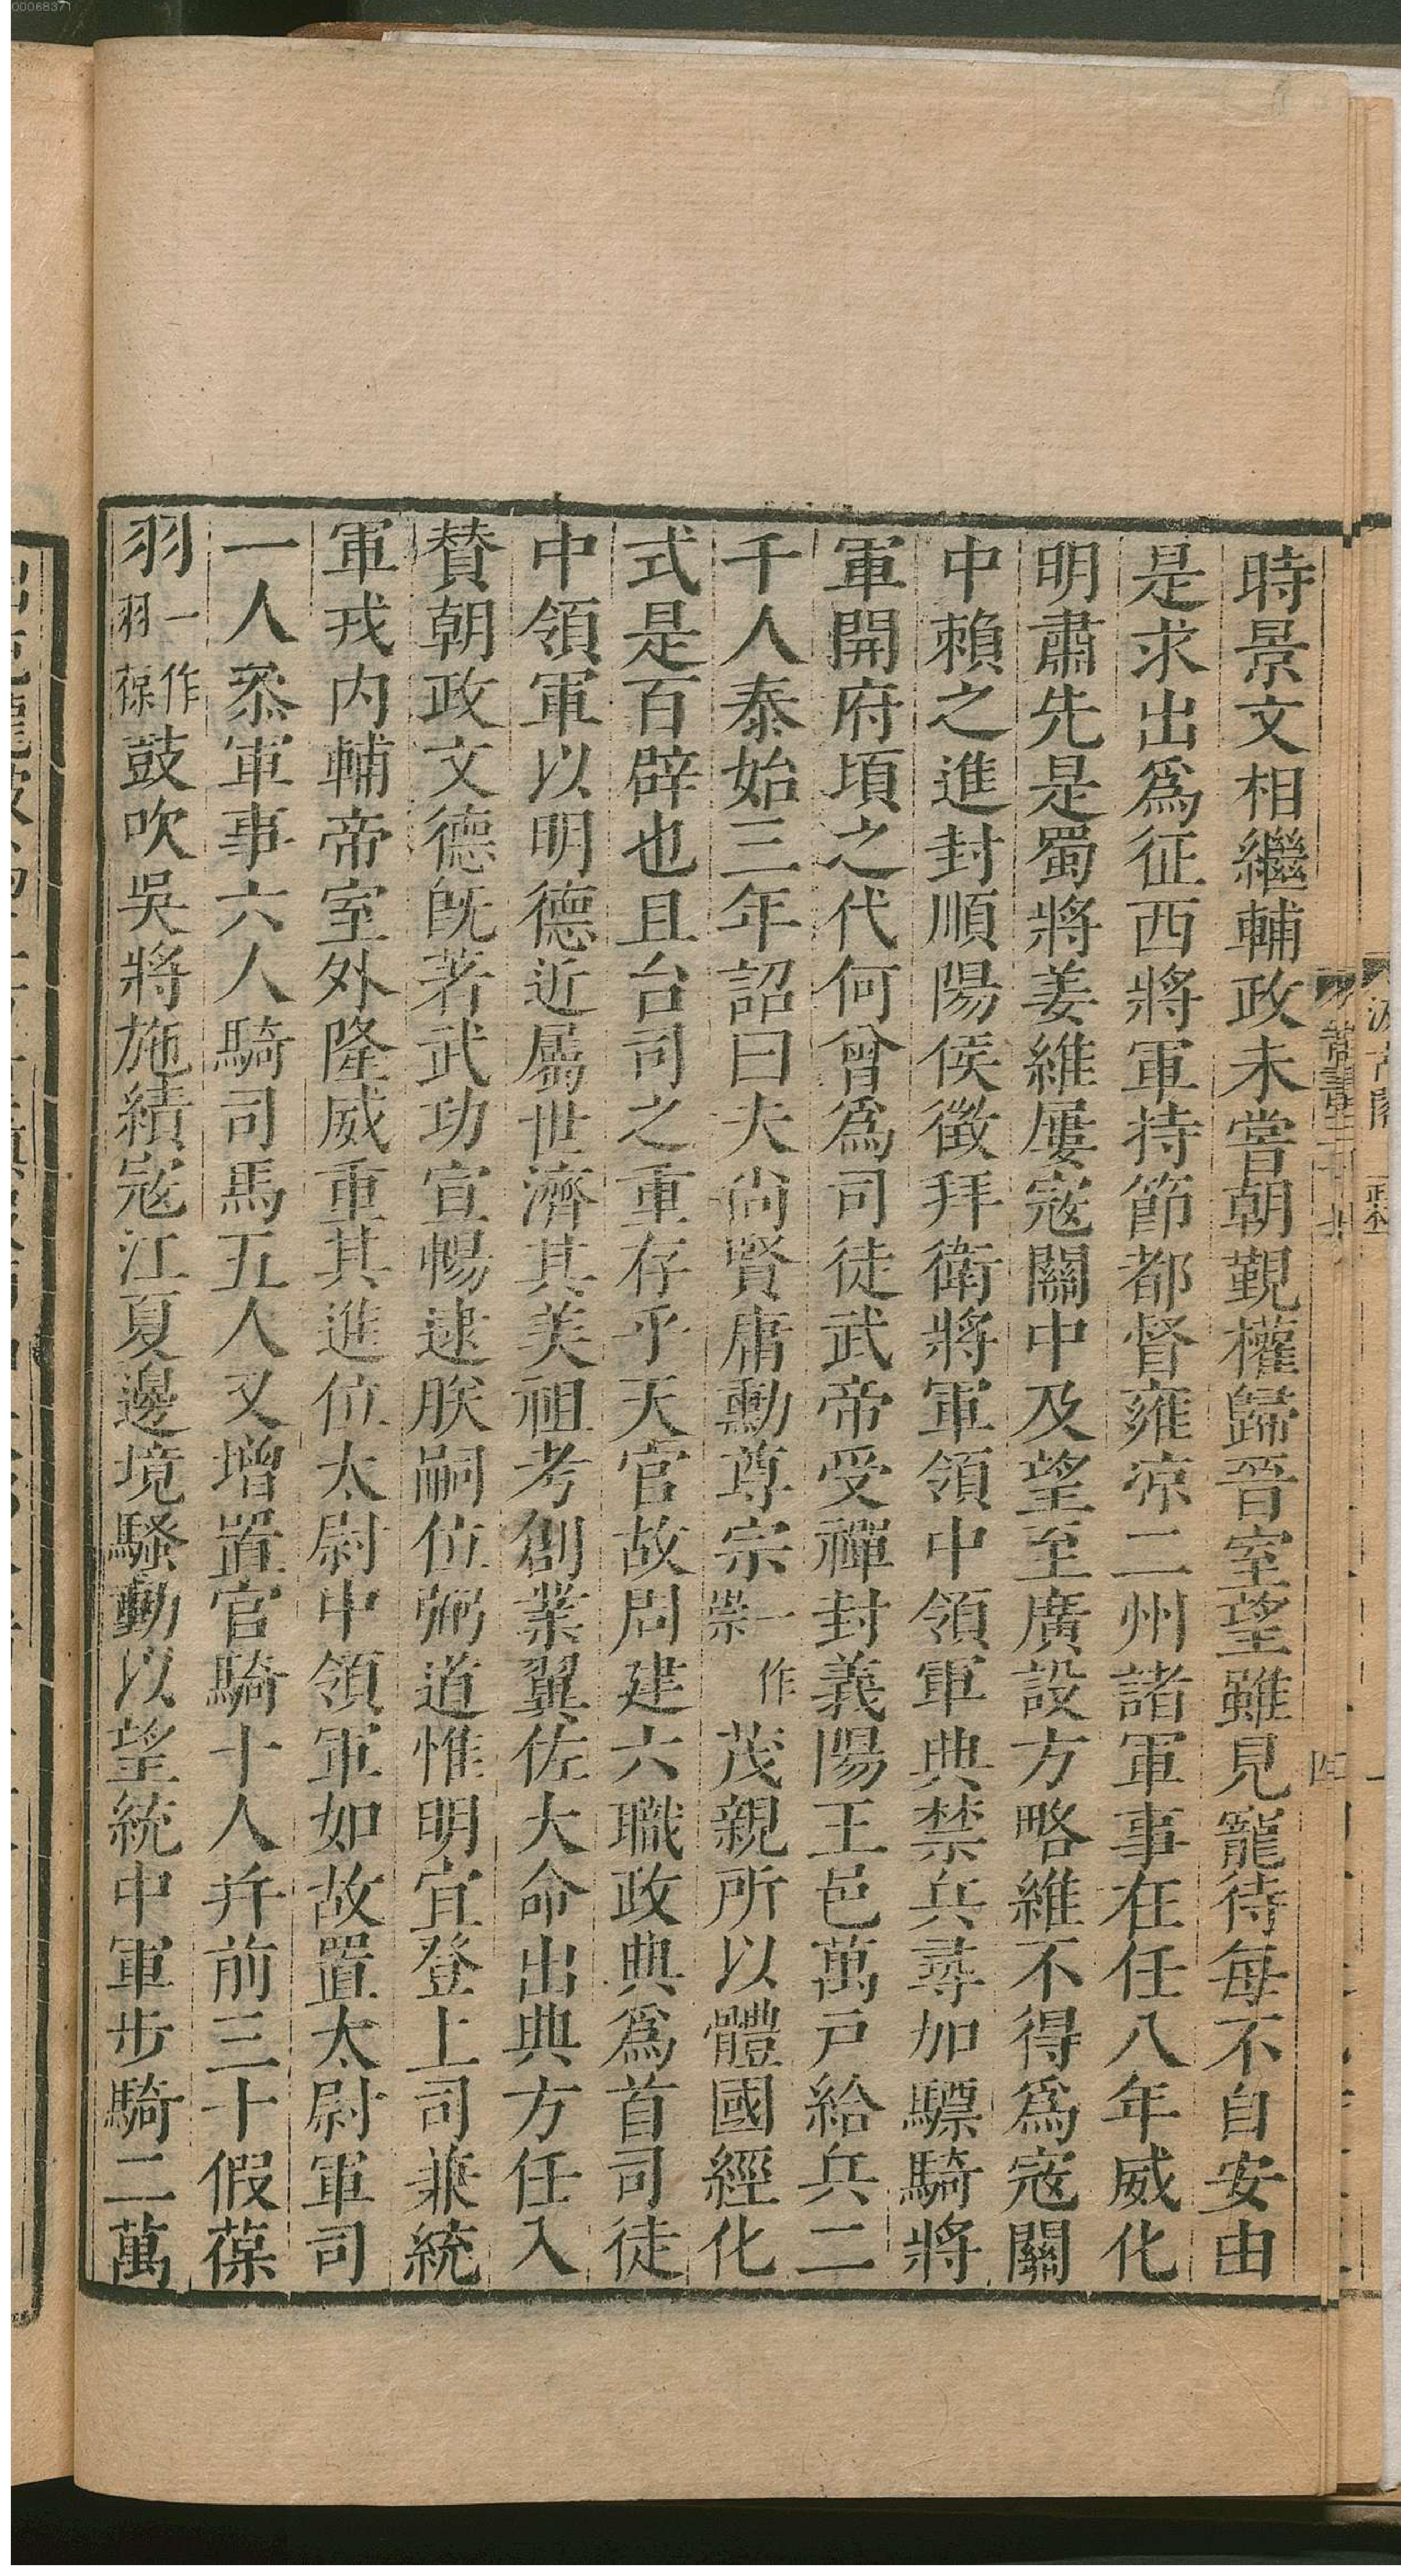 00068371
時景文相繼輔政未嘗朝覲權歸晉室望雖見寵待每不自安由
是求出爲征西將軍持節都督雍凉二州諸軍事在任八年威化
明肅先是蜀將姜維屢宼關中及望至廣設方略維不得爲宼關
中賴之進封順陽侯徵拜衛將軍領中領軍典禁兵尋加驃騎將
軍開府頃之代何曾爲司徒武帝受禪封義陽王邑萬戸給兵二
千人泰始三年詔曰夫尚賢庸勳尊宗一作崇茂親所以體國經化
式是百辟也且台司之重存乎天官故周建六職政典爲首司徒
中領軍以明德近屬世濟其美祖考創業翼佐大命出典方任入
賛朝政文德旣著武功宣暢逮朕嗣位弼道惟明宜登上司兼統
軍戎内輔帝室外隆威重其進位太尉中領軍如故置太尉軍司
一人叅軍事六人騎司馬五人又增置官騎十人并前三十假葆
羽一作羽葆鼓吹吳將施績宼江夏邊境騷動以望統中軍步騎二萬